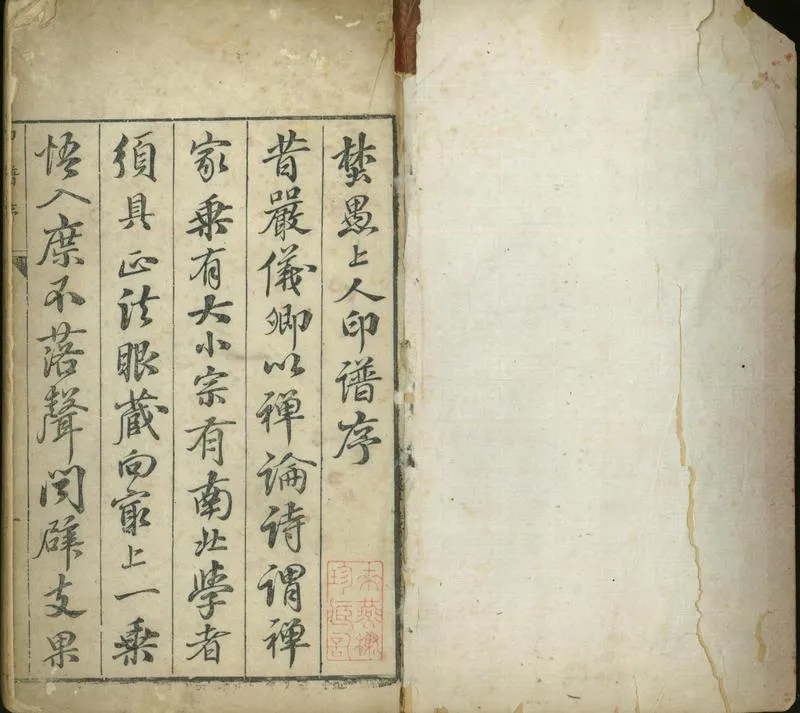 愚上人印譜序
昔嚴儀卿以禪論詩謂禪
家乘有大小宗有南北學者
須具正法眼藏向最上一乘
悟入庶不落聲聞辟支果